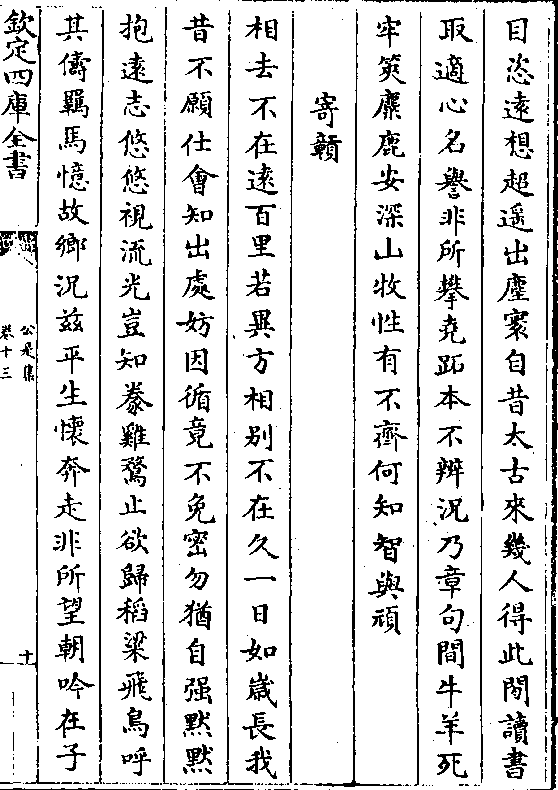 目恣遠想超遥出塵寰自昔太古來幾人得此閒讀書
取適心名譽非所攀堯跖本不辨況乃章句間牛羊死
牢筴麋鹿安深山牧性有不齊何知智與頑
寄贛
相去不在遠百里若異方相别不在久一日如嵗長我
昔不願仕會知出處妨因循竟不免密勿猶自强黙黙
抱遠志悠悠視流光豈知豢雞鶩止欲歸稻粱飛鳥呼
其儔羈馬憶故鄉況兹平生懷奔走非所望朝吟在子
欽定四庫全書
公是集
卷十三
十